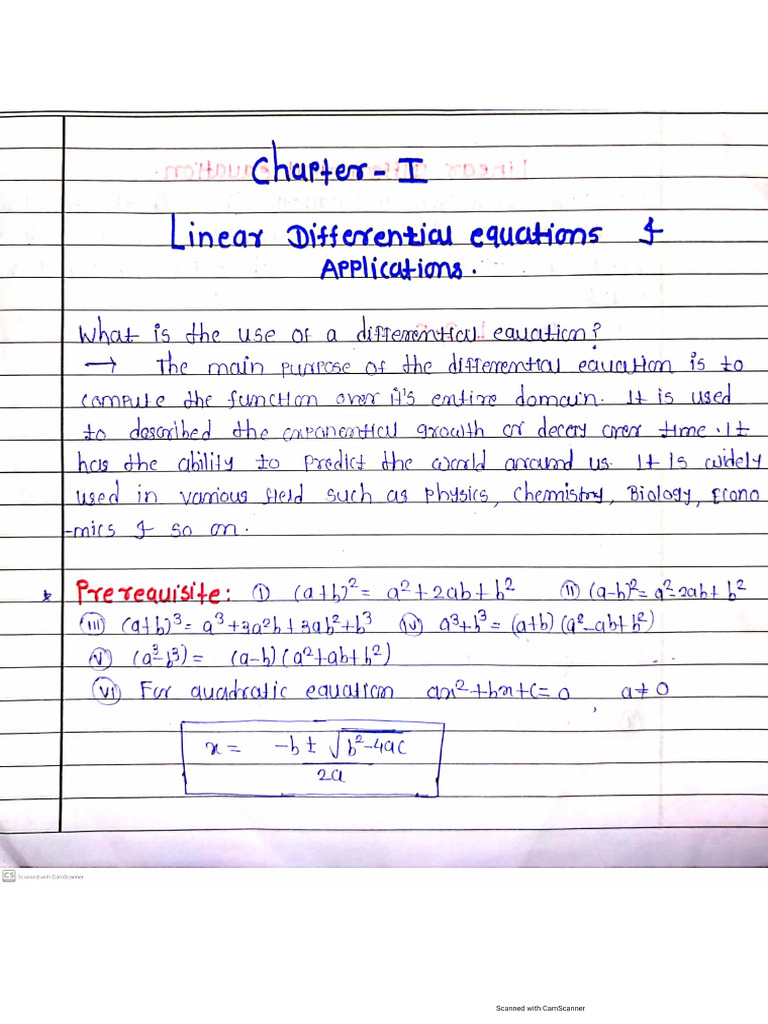 Chapter - I
Linear Differential equations &
Applications.
What is the use of a differential equation?
→ The main purpose of the differential equation is to
compute the function over it's entire domain. It is used
to described the exponential growth or decay over time. It
has the ability to predict the world around us. It is widely
used in various field such as physics, chemistry, Biology, Econo
-mics & so on.
* Prerequisite: (i) (a+b)² = a²+2ab+b² (ii) (a-b)² = a²-2ab+b²
(iii) (a+b)³ = a³+3a²b+3ab²+b³ (iv) a³+b³ = (a+b)(a²-ab+b²)
(v) (a³-b³) = (a-b)(a²+ab+b²)
(vi) For quadratic equation ax²+bx+c=0, a≠0
x = -b ± √b²-4ac
2a
CS Scanned with CamScanner
Scanned with CamScanner